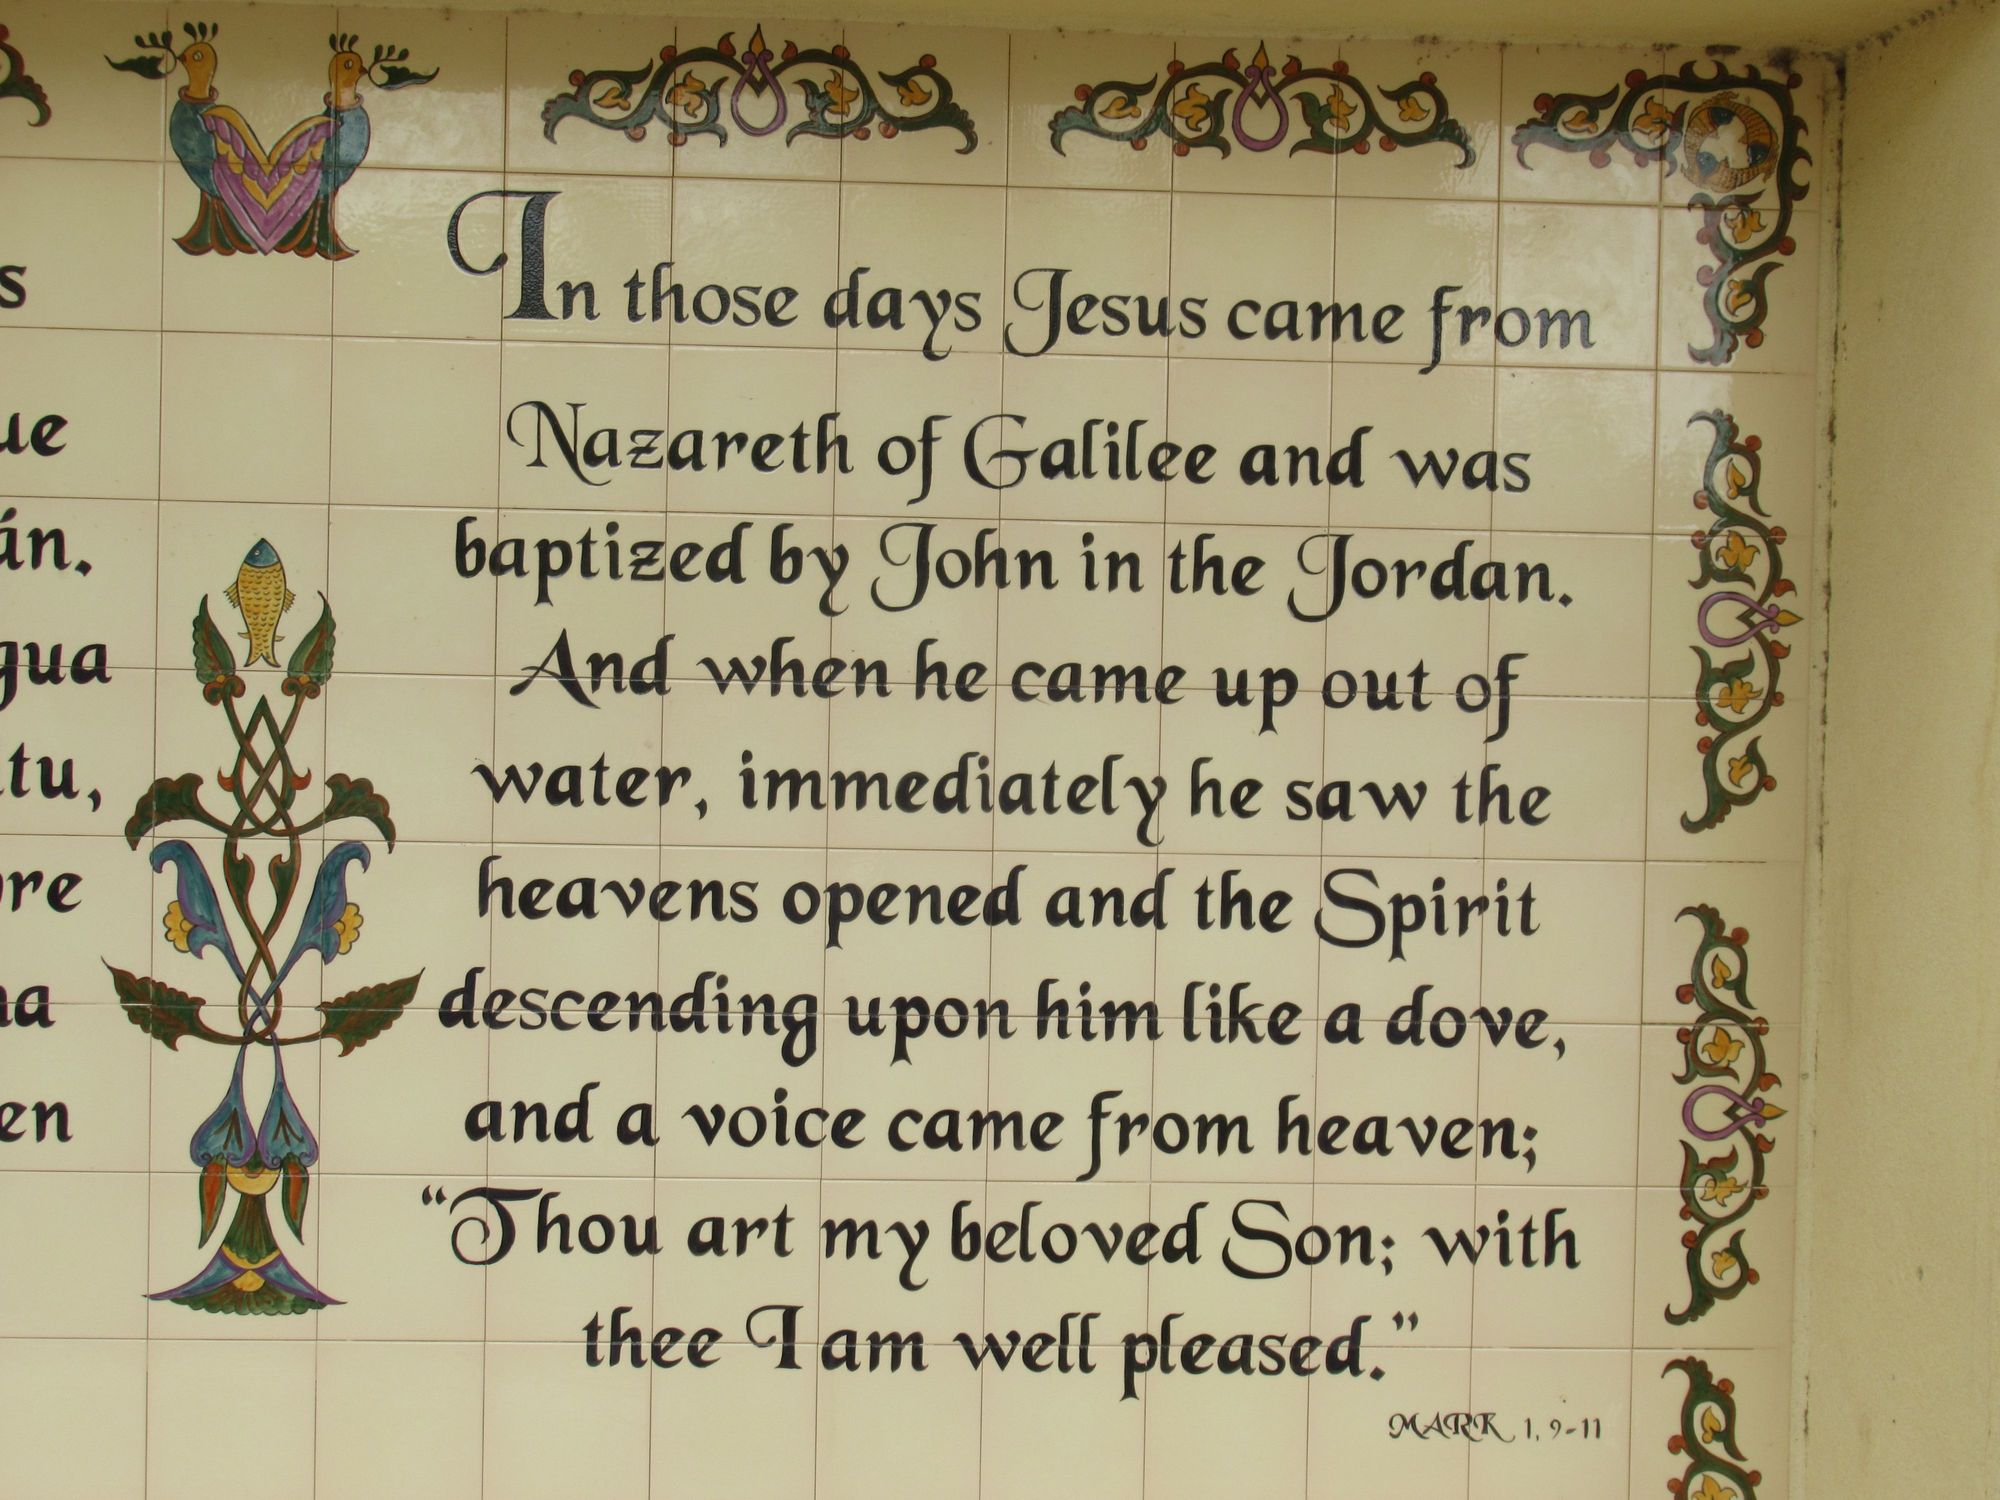 s
ue
án.
gua
tu,
re
na
en
In those days Jesus came from
Nazareth of Galilee and was
baptized by John in the Jordan.
And when he came up out of
water, immediately he saw the
heavens opened and the Spirit
descending upon him like a dove,
and a voice came from heaven;
“Thou art my beloved Son; with
thee I am well pleased.”
MARK 1, 9-11